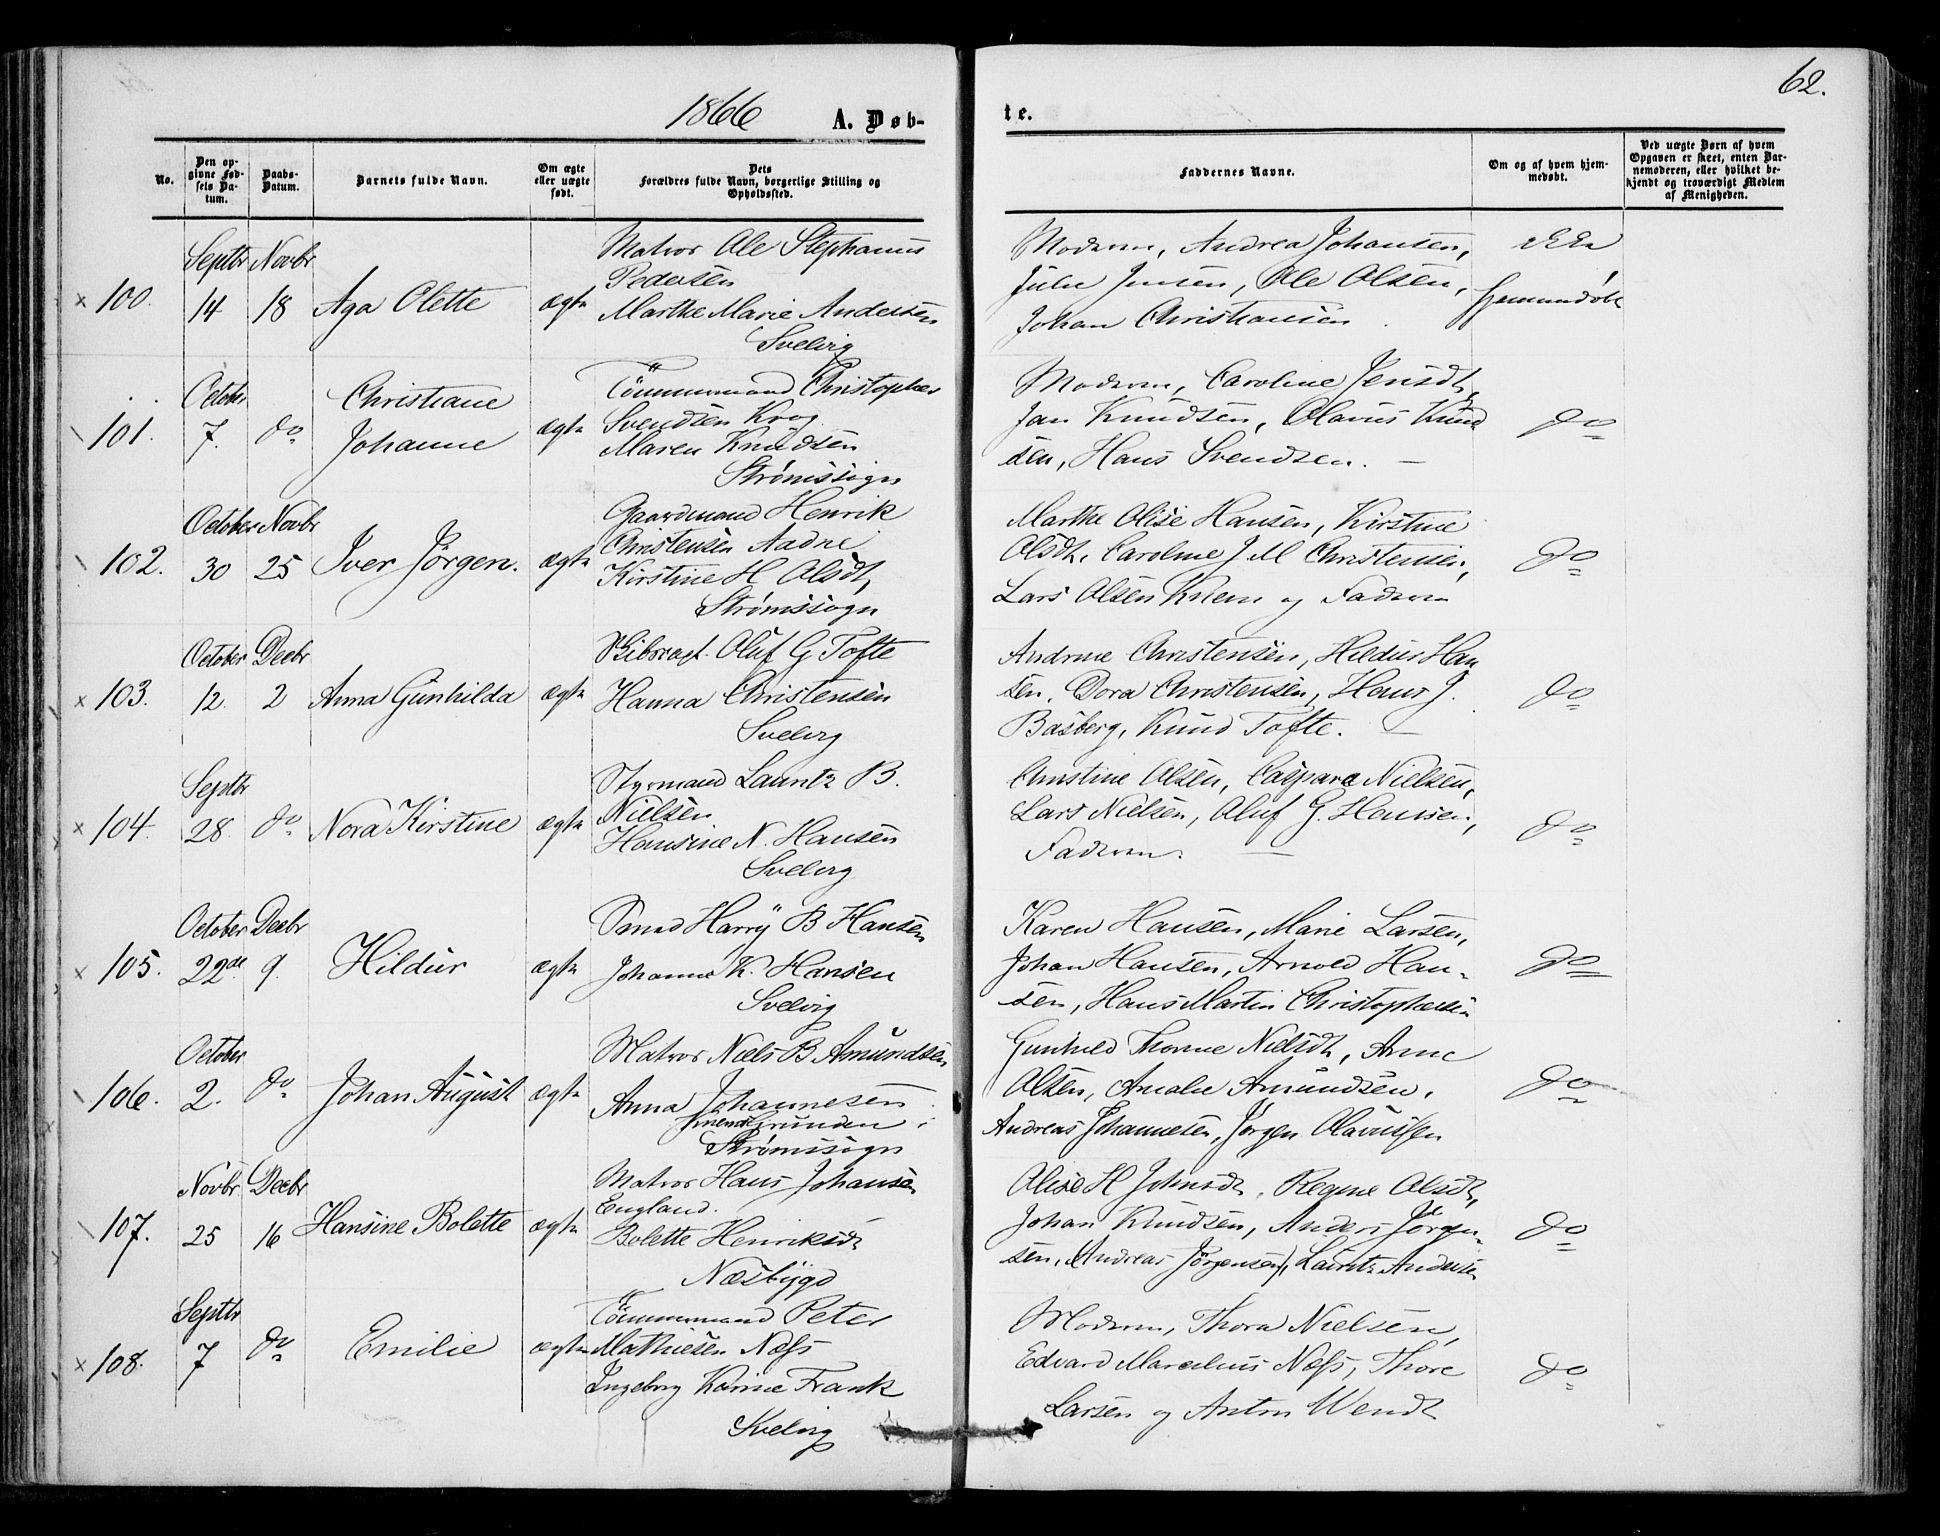 62.
1866 A. Døb-
te.
No.
Den op-
givne Fød-
sels Da-
tum.
Daabs-
Datum.
Barnets fulde Navn.
Om ægte
eller uægte
født.
Dets
Forældres fulde Navn, borgerlige Stilling og
Opholdssted.
Faddernes Navne.
Om og af hvem hjem-
medøbt.
Ved uægte Børn af hvem
Opgaven er skeet, enten Bar-
nemoderen, eller hvilket be-
kjendt og troværdigt Medlem
af Menigheden.
× 100.
Septbr
14
Novbr
18
Aga Olette
ægte
Matros Ole Stephanus
Pedersen
Marthe Marie Andersen
Svelvig
Moderen, Andrea Johansen,
Julie Jensen, Ole Olsen,
Johan Christiansen.
ikke
hjemmedøbt
101.
October
7.
do
Christiane
Johanne
ægte
Tömmermand Christopher
Svendsen Krog
Maren Knudsen
Strømssogn
Moderen, Caroline Jensdt,
Jan Knudsen, Olavus Knud
sen, Hans Svendsen. —
do
102.
October
30
Novbr
25
Iver Jörgen.
ægte
Gaardmand Henrik
Christensen Aadne
Kirstine H Olsdt,
Strømssogn
Marthe Olise Hansen, Kirstine
Olsdt, Caroline J M Christensen,
Lars Olsen Knem og Faderen
do
× 103.
October
12.
Decbr
2
Anna Gunhilda
ægte
Skibscapt. Oluf G Tofte
Hanna Christensen
Svelvig
Andrine Christensen, Hildur Han
sen, Dora Christensen, Hans J.
Basberg, Knud Tofte. —
do
× 104.
Septbr
28.
do
Nora Kirstine
ægte
Styrmand Lauritz B.
Nielsen
Hansine N. Hansen
Svelvig
Christine Olsen, Caspara Nielsen,
Lars Nielsen, Oluf G. Hansen,
Faderen. —
do
× 105.
October
22de
Decbr
9.
Hildur
ægte
Harry B Hansen
Johanne K. Hansen
Svelvig
Karen Hansen, Marie Larsen,
Johan Hansen, Arnold Han-
sen, Hans Martin Christophersen
do
106.
October
2.
do
Johan August
ægte
Matros Niels B Amundsen
Anna Johannesen
Grunden i
Strømssogn
Gunhild Thorine Nielsdt, Anne
Olsen, Amalie Amundsen,
Andreas Johannesen, Jørgen Olavussen
do
107.
Novbr
25
Decbr
16
Hansine Bolette
ægte
Matros Hans Johansen
England.
Bolette Henriksdt
Næsbygd
Olise H Johnsdt, Regine Olsdt,
Johan Knudsen, Anders Jörgen-
sen, (Andreas Jörgensen), Lauritz Andersen
do
× 108.
Septbr
7
do
Emilie
ægte
Tömmermand Peter
Mathiesen Næss
Ingeborg Karine Frank
Svelvig
Moderen, Thora Nielsen,
Edvard Marcelius Næss, Thore
Larsen og Anton Wendt
do